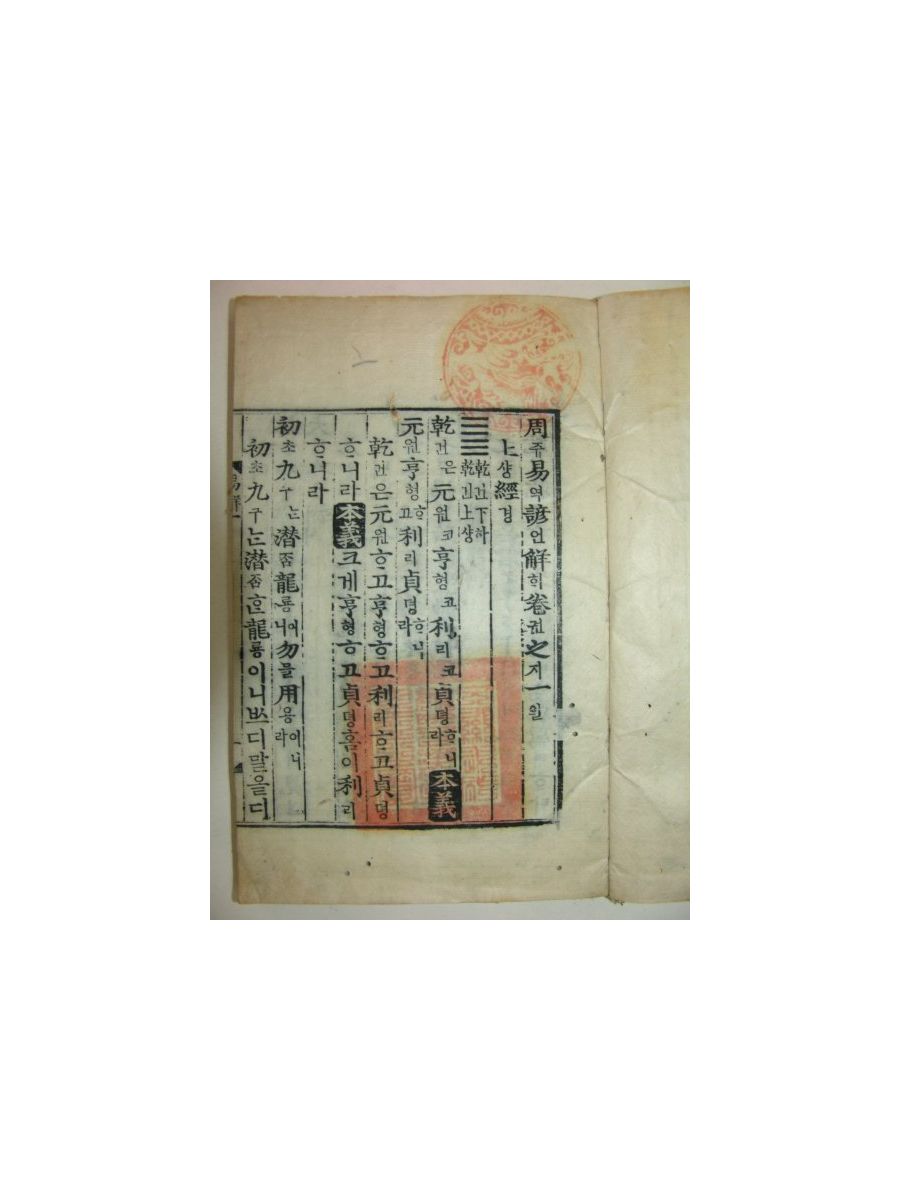 周쥬易역諺언解ᄒᆡ卷권之지一일
上샹經경
乾건下하 乾건上샹
乾건은 元원코 亨형코 利리코 貞뎡ᄒᆞ니라 本義
元원亨형ᄒᆞ고 利리貞뎡ᄒᆞ니라
乾건은 元원ᄒᆞ고 亨형ᄒᆞ고 利리ᄒᆞ고 貞뎡
ᄒᆞ니라 本義 크게 亨형ᄒᆞ고 貞뎡홈이 利리
ᄒᆞ니라
初초九구ᄂᆞᆫ 潛ᄌᆞᆷ龍룡이니 勿믈用용이니라
初초九구ᄂᆞᆫ 潛ᄌᆞᆷᄒᆞᆫ 龍룡이니 ᄡᅳ디 말을디